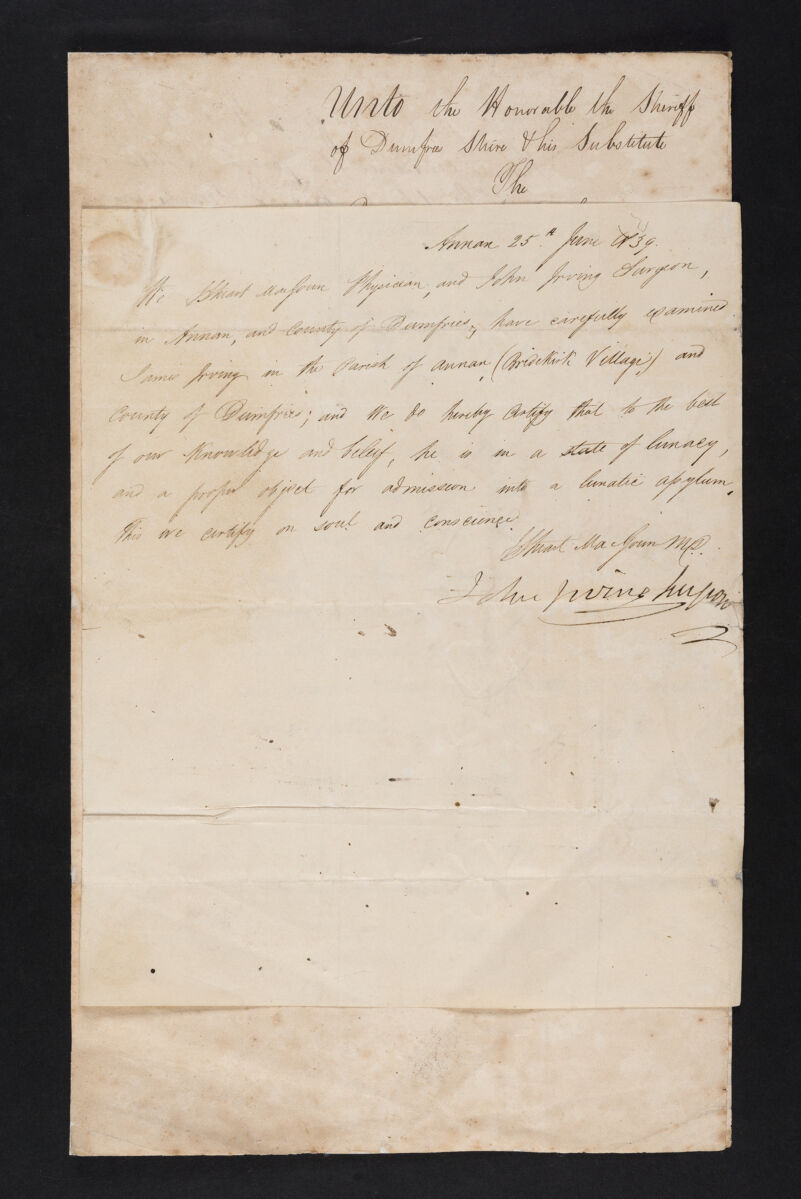 Unto the Honorable the Sheriff
of Dumfree Shire & his Substitute
The
Annan 25th June 1839.
We Stuart MacGoun Physician, and John Irving Surgeon,
in Annan, and County of Dumfries, have carefully examined
James Irving in the Parish of Annan (Bridekirk Village) and
County of Dumfries; and We do hereby Certify that to the best
of our Knowledge and belief, he is in a state of lunacy,
and a proper object for admission into a lunatic asylum.
This we certify on soul and conscience.
Stuart MacGoun MD.
John Irving Surgeon